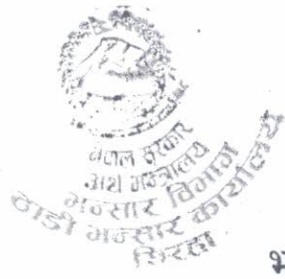 नेपाल सरकार
अर्थ मन्त्रालय
भन्सार विभाग
ठाडी भन्सार कार्यालय
सिरहा